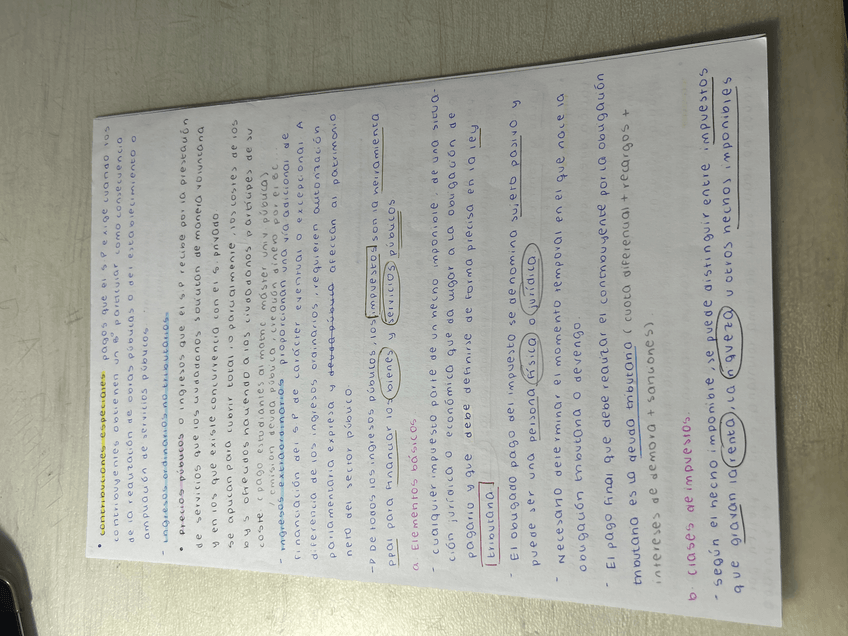 • contribuciones especiales: pagos que el SP exige cuando los
contribuyentes obtienen un Bº particular como consecuencia
de la realización de obras públicas o del establecimiento o
ampliación de servicios públicos.
- Ingresos ordinarios no tributarios.
• Precios públicos o ingresos que el S.P recibe por la prestación
de servicios que los ciudadanos solicitan de manera voluntaria
y en los que existe concurrencia con el S. privado
se aplican para cubrir total, o parcialmente, los costes de los
b y s ofrecidos haciendo a los ciudadanos partícipes de su
coste (pago estudiantes al matric máster univ pública)
/ emisión deuda pública, creación dinero por el BC
- Ingresos extraordinarios proporcionan una vía adicional de
financiación del SP de carácter eventual o excepcional A
diferencia de los ingresos ordinarios, requieren autorización
parlamentaria expresa y deuda pública afectan al patrimonio
neto del sector público
→ De todos los ingresos públicos, los impuestos son la herramienta
ppal para financiar los bienes y servicios públicos
a. Elementos básicos
- cualquier impuesto parte de un hecho imponible, de una situa-
ción jurídica o económica que da lugar a la obligación de
pagarlo y que debe definirse de forma precisa en la ley
tributaria
- El obligado pago del impuesto se denomina sujeto pasivo y
puede ser una persona física o jurídica
- Necesario determinar el momento temporal en el que nace la
obligación tributaria o devengo.
- El pago final que debe realizar el contribuyente por la obligación
tributaria es la deuda tributaria (cuota diferencial + recargos +
intereses de demora + sanciones)
b. Clases de impuestos.
- según el hecho imponible, se puede distinguir entre impuestos
que gravan la renta, la riqueza u otros hechos imponibles